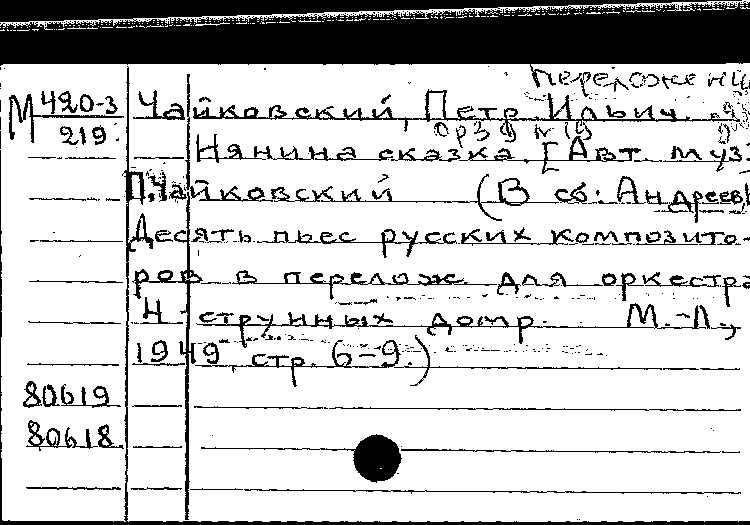 М 420-3
219.
Чайковский, Петр Ильич.
ор39 №19
Нянина сказка. [Авт. муз.
П.Чайковский (В сб: Андреев
Десять пьес русских композито-
ров в перелож. для оркестра
4-струнных домр. М.-Л.,
1949, стр. 6-9.)
80619
80618